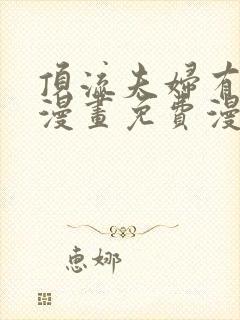 頂流夫婦有
漫畫免費漫
惠娜